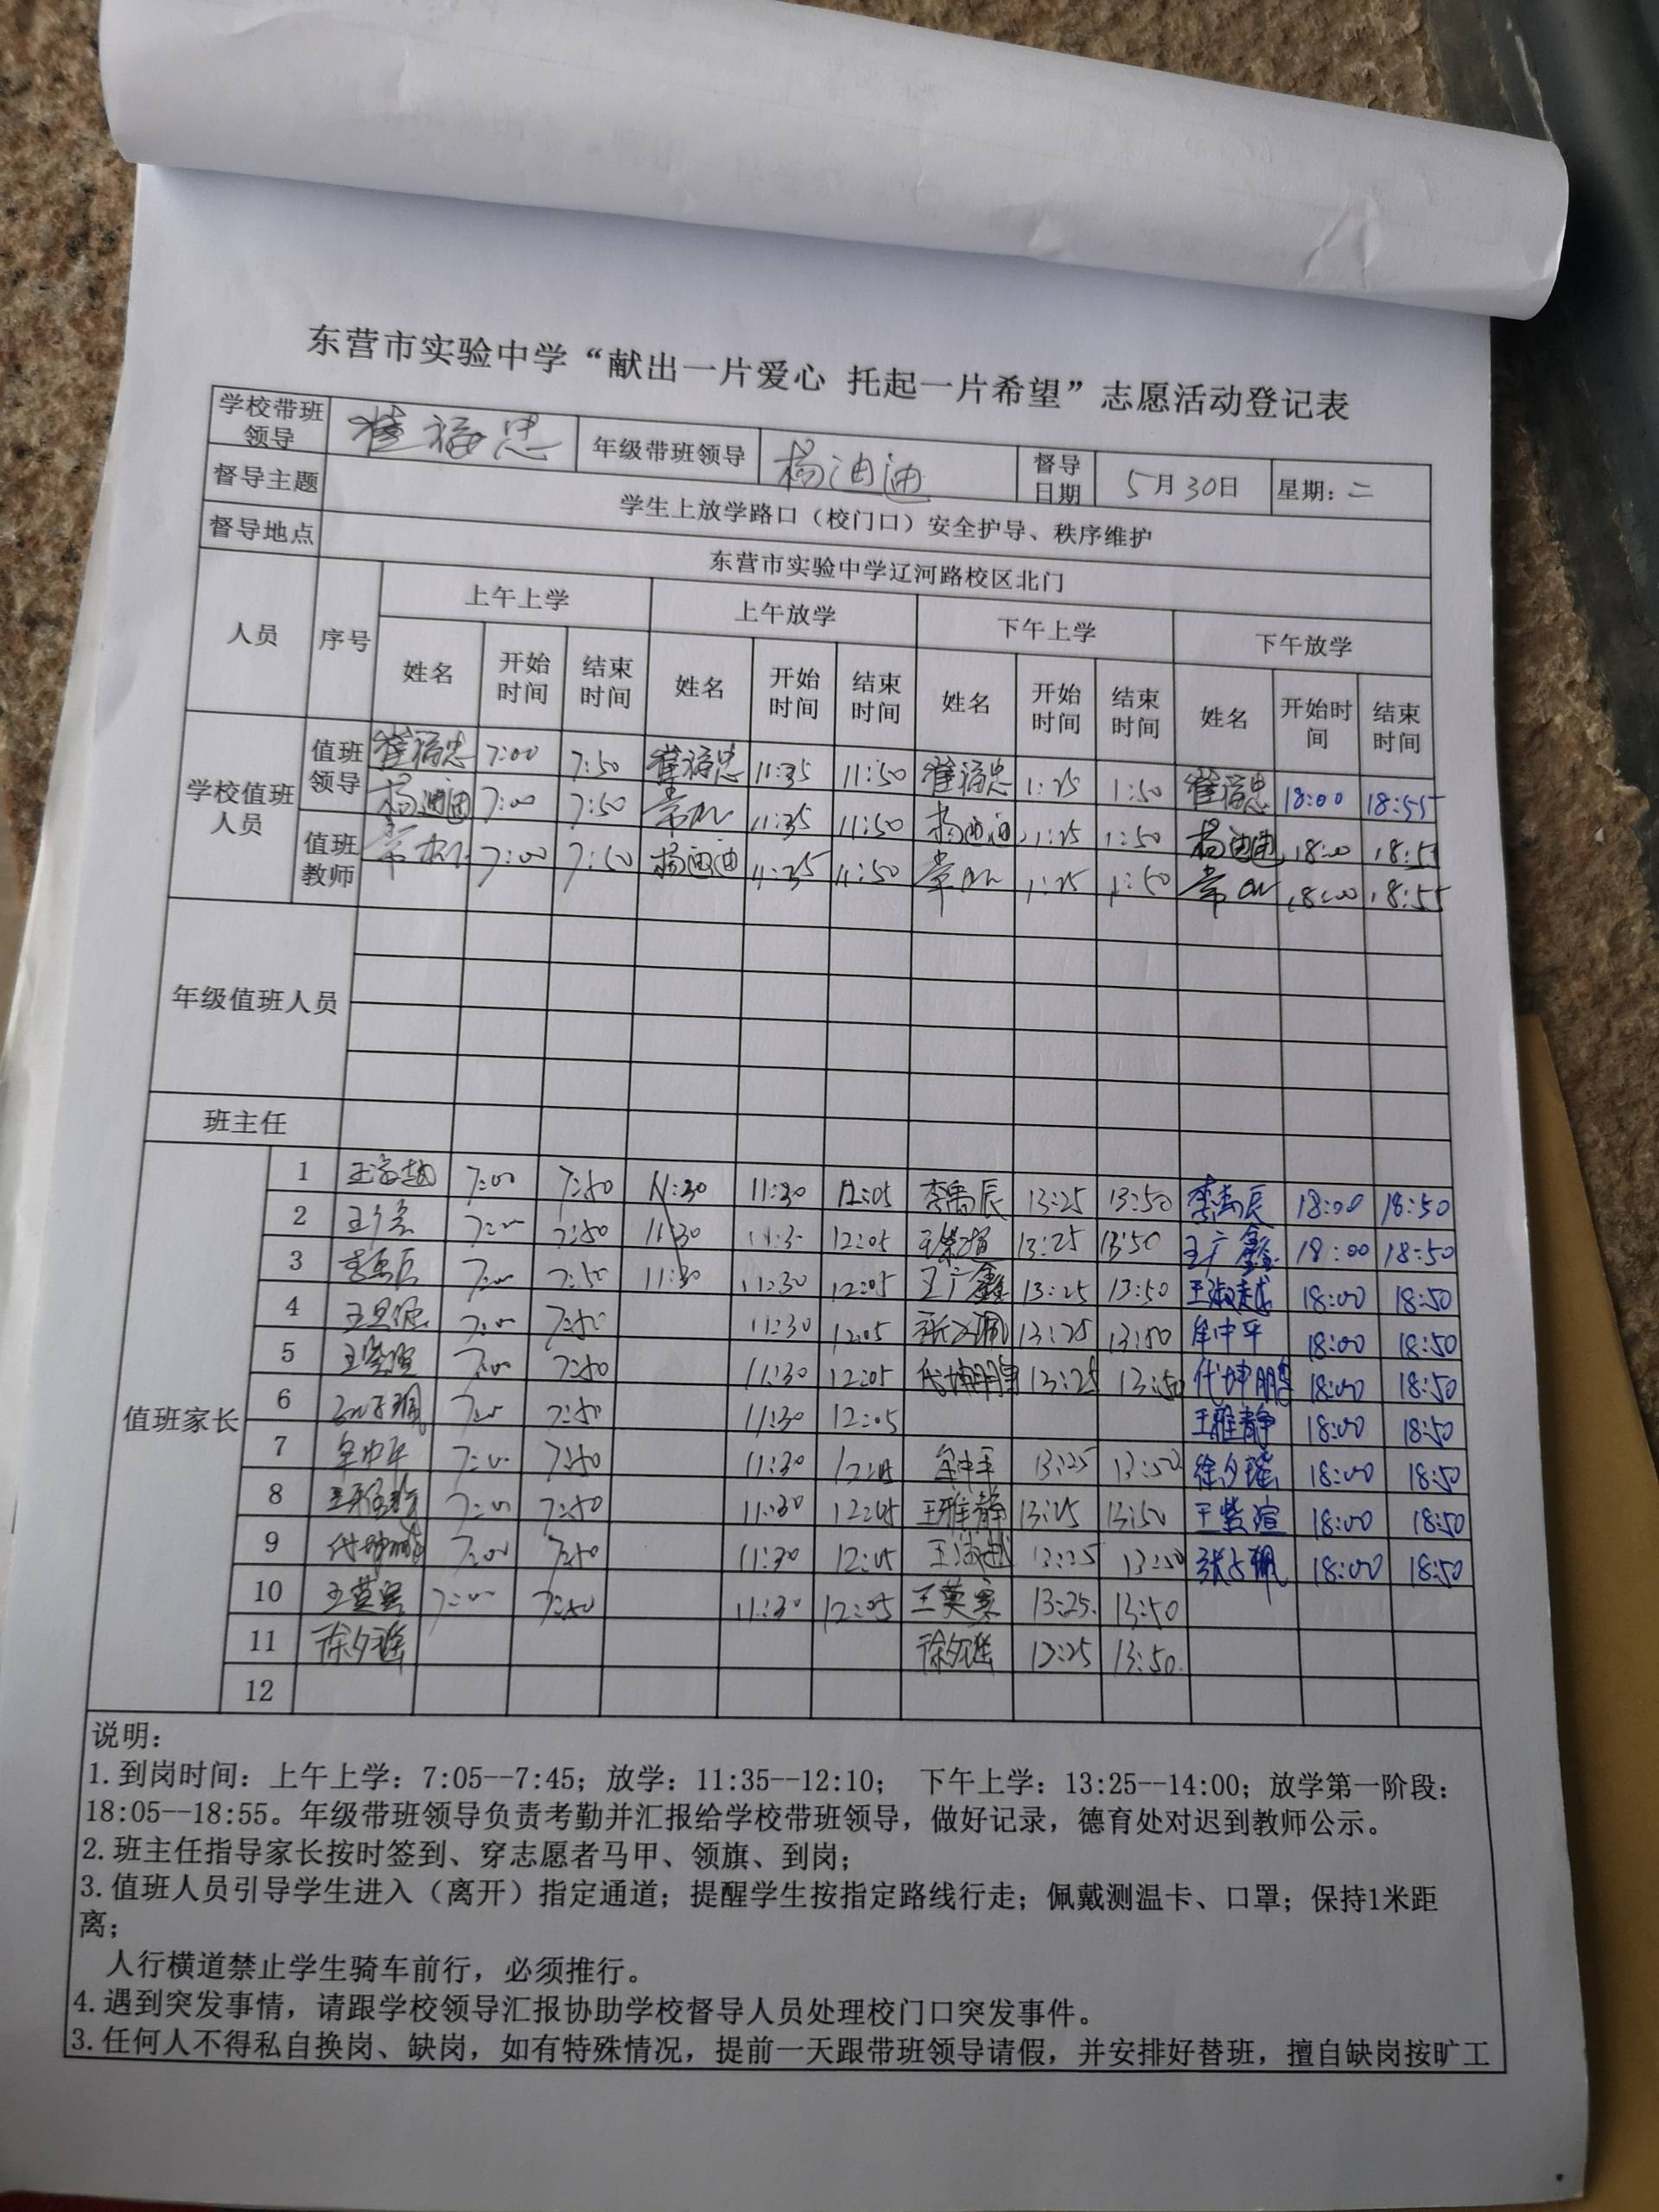 东营市实验中学“献出一片爱心 托起一片希望”志愿活动登记表
学校带班领导 崔福忠 年级带班领导 杨迪迪 督导日期 5月30日 星期：二
督导主题 学生上放学路口（校门口）安全护导、秩序维护
督导地点 东营市实验中学辽河路校区北门
人员 序号 上午上学 上午放学 下午上学 下午放学
姓名 开始时间 结束时间 姓名 开始时间 结束时间 姓名 开始时间 结束时间 姓名 开始时间 结束时间
学校值班人员 值班领导 崔福忠 7:00 7:50 崔福忠 11:35 11:50 崔福忠 1:25 1:50 崔福忠 18:00 18:55
杨迪迪 7:00 7:50 常 11:35 11:50 杨迪迪 1:25 1:50 杨迪迪 18:00 18:55
值班教师 常 7:00 7:50 杨迪迪 11:35 11:50 常 1:25 1:50 常 18:00 18:55
年级值班人员
班主任
值班家长
1 王淑越 7:00 7:50 11:30 11:30 12:05 李禹辰 13:25 13:50 李禹辰 18:00 18:50
2 7:00 7:50 11:30 11:30 12:05 王紫渲 13:25 13:50 王广鑫 18:00 18:50
3 李禹辰 7:00 7:50 11:30 11:30 12:05 王广鑫 13:25 13:50 王淑越 18:00 18:50
4 7:00 7:50 11:30 12:05 13:25 13:50 牟中平 18:00 18:50
5 王紫渲 7:00 7:50 11:30 12:05 代坤鹏 13:25 13:50 代坤鹏 18:00 18:50
6 7:00 7:50 11:30 12:05 王雅静 18:00 18:50
7 牟中平 7:00 7:50 11:30 12:05 牟中平 13:25 13:50 徐夕瑶 18:00 18:50
8 7:00 7:50 11:30 12:05 王雅静 13:25 13:50 王紫渲 18:00 18:50
9 代坤鹏 7:00 7:50 11:30 12:05 王淑越 13:25 13:50 18:00 18:50
10 王萸寒 7:00 7:50 11:30 12:05 王萸寒 13:25 13:50
11 徐夕瑶 徐夕瑶 13:25 13:50
12
说明：
1.到岗时间：上午上学：7:05--7:45；放学：11:35--12:10； 下午上学：13:25--14:00；放学第一阶段：
18:05--18:55。年级带班领导负责考勤并汇报给学校带班领导，做好记录，德育处对迟到教师公示。
2.班主任指导家长按时签到、穿志愿者马甲、领旗、到岗；
3.值班人员引导学生进入（离开）指定通道；提醒学生按指定路线行走；佩戴测温卡、口罩；保持1米距
离；
人行横道禁止学生骑车前行，必须推行。
4.遇到突发事情，请跟学校领导汇报协助学校督导人员处理校门口突发事件。
3.任何人不得私自换岗、缺岗，如有特殊情况，提前一天跟带班领导请假，并安排好替班，擅自缺岗按旷工